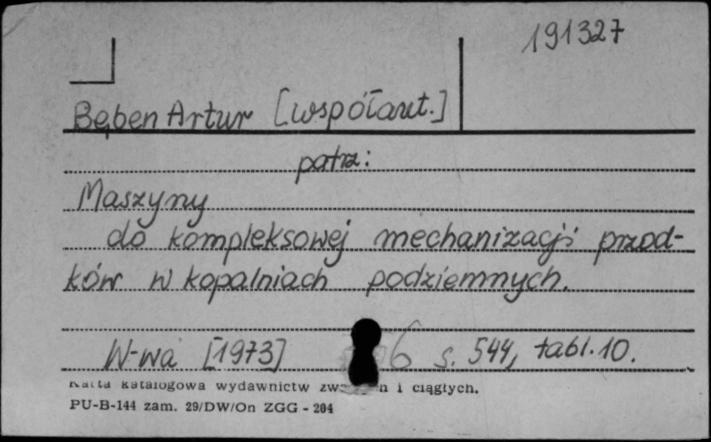 191327
Bęben Artur [współaut.]
patrz:
Maszyny
do kompleksowej mechanizacji przod-
ków w kopalniach podziemnych.
W-wa [1973] s. 544, tabl. 10.
Karta katalogowa wydawnictw i ciągłych.
PU-B-144 zam. 29/DW/On ZGG - 204